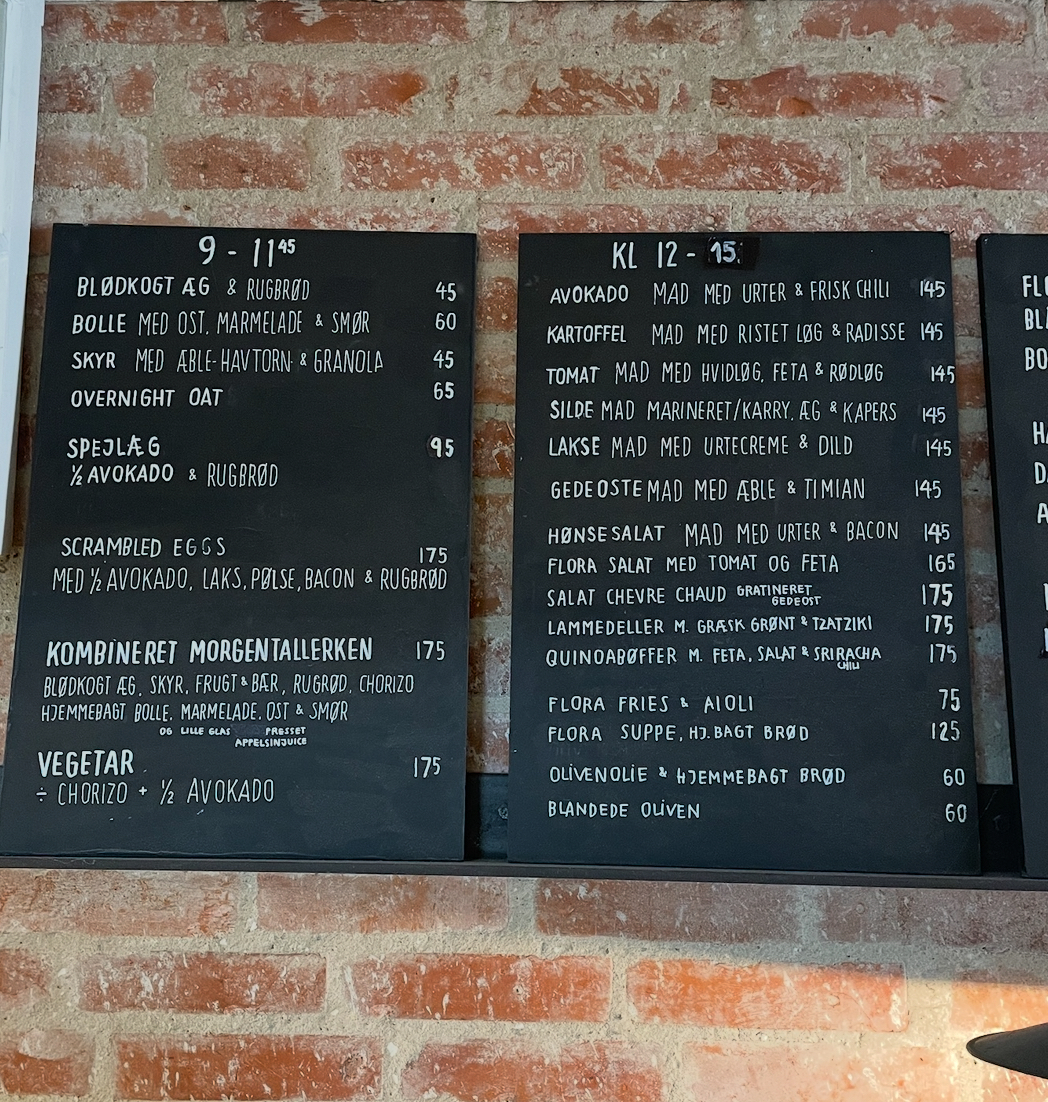 9 - 11 45
BLØDKOGT ÆG & RUGBRØD 45
BOLLE MED OST, MARMELADE & SMØR 60
SKYR MED ÆBLE-HAVTORN & GRANOLA 45
OVERNIGHT OAT 65
SPEJLÆG 95
½ AVOKADO & RUGBRØD
SCRAMBLED EGGS 175
MED ½ AVOKADO, LAKS, PØLSE, BACON & RUGBRØD
KOMBINERET MORGENTALLERKEN 175
BLØDKOGT ÆG, SKYR, FRUGT & BÆR, RUGRØD, CHORIZO
HJEMMEBAGT BOLLE, MARMELADE, OST & SMØR
OG LILLE GLAS PRESSET
APPELSINJUICE
VEGETAR 175
÷ CHORIZO + ½ AVOKADO
KL 12 - 15
AVOKADO MAD MED URTER & FRISK CHILI 145
KARTOFFEL MAD MED RISTET LØG & RADISSE 145
TOMAT MAD MED HVIDLØG, FETA & RØDLØG 145
SILDE MAD MARINERET/KARRY, ÆG & KAPERS 145
LAKSE MAD MED URTECREME & DILD 145
GEDEOSTE MAD MED ÆBLE & TIMIAN 145
HØNSESALAT MAD MED URTER & BACON 145
FLORA SALAT MED TOMAT OG FETA 165
SALAT CHEVRE CHAUD GRATINERET 175
GEDEOST
LAMMEDELLER M. GRÆSK GRØNT & TZATZIKI 175
QUINOABØFFER M. FETA, SALAT & SRIRACHA 175
CHILI
FLORA FRIES & AIOLI 75
FLORA SUPPE, HJ. BAGT BRØD 125
OLIVENOLIE & HJEMMEBAGT BRØD 60
BLANDEDE OLIVEN 60
FL
BL
BO